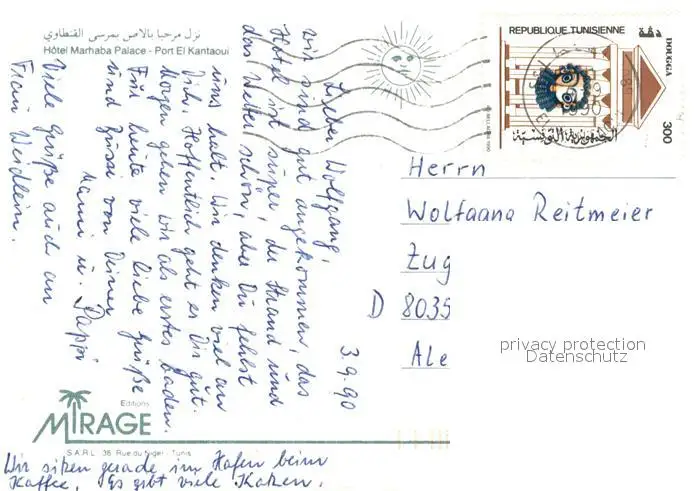 نزل مرحبا بالاص بمرسى القنطاوي
Hôtel Marhaba Palace - Port El Kantaoui
REPUBLIQUE TUNISIENNE
DOUGGA
300
الجمهورية التونسية
3.9.90
Lieber Wolfgang,
wir sind gut angekommen, das
Hotel ist super, der Strand und
das Wetter schön, aber Du fehlst
uns halt. Wir denken viel an
Dich. Hoffentlich geht es Dir gut.
Morgen gehen wir als erstes baden.
Für heute viele liebe Grüße
und Bussi von Deiner
Mami u. Pappi
Viele Grüße auch an
Frau Weidlein.
Herrn
Wolfgang Reitmeier
Zug
D 8035
Ale
privacy protection
Datenschutz
Editions
MIRAGE
S.A.R.L. 36 Rue du Niger - Tunis
Wir sitzen gerade im Hafen beim
Kaffee. Es gibt viele Katzen.